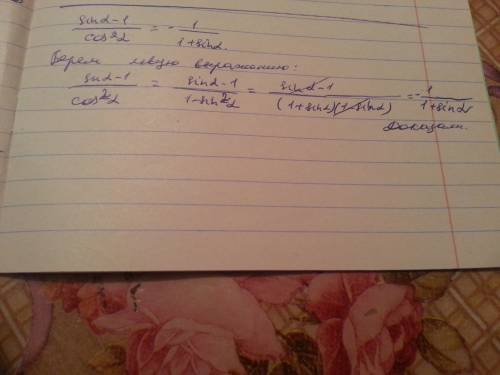 sinα-1/cos²α = -1/1+sinα.
Берем левую выражению:
sinα-1/cos²α = sinα-1/1-sin²α = sinα-1/(1+sinα)(1-sinα) = -1/1+sinα
Доказали.